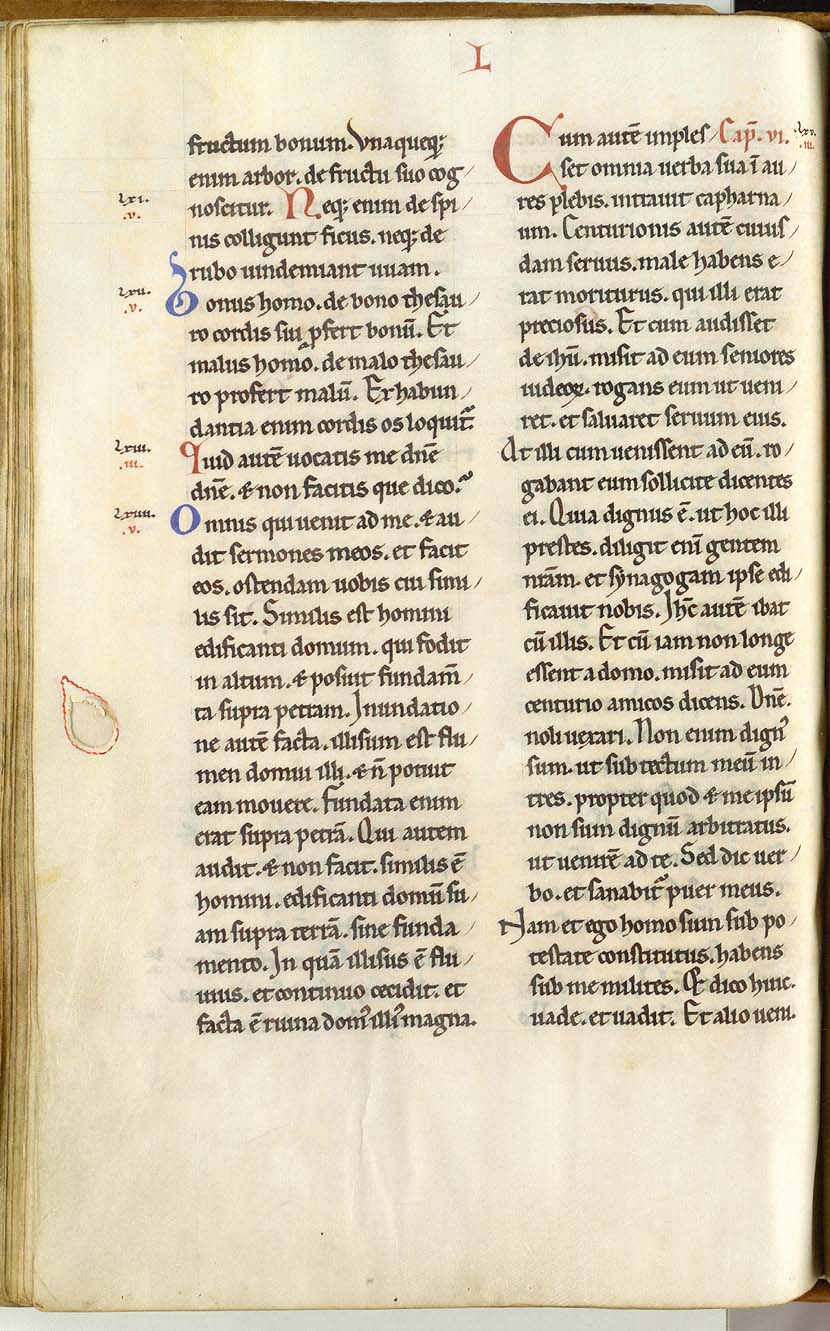 L
fructum bonum. Vnaqueq;
enim arbor. de fructu suo cog
lxi.
.v.
noscitur. Neq; enim de spi
nis colligunt ficus. neq; de
rubo uindemiant uuam.
lxii.
.v.
Bonus homo. de bono thesau
ro cordis sui ꝓfert bonū. Et
malus homo. de malo thesau
ro profert malū. Ex habun
dantia enim cordis os loquit᷑
lxiii.
.iii.
Quid autē uocatis me dn̄e
dn̄e. & non facitis que dico.
lxiiii.
.v.
Omnis qui uenit ad me. & au
dit sermones meos. et facit
eos. ostendam uobis cui simi
lis sit. Similis est homini
edificanti domum. qui fodit
in altum. & posuit fundam̄
ta supra petram. Inundatio
ne autē facta. illisum est flu
men domui illi. & n̄ potuit
eam mouere. Fundata enim
erat supra petrā. Qui autem
audit. & non facit. similis ē
homini. edificanti domū su
am supra terrā. sine funda
mento. In quā illisus ē flu
uius. et continuo cecidit. et
facta ē ruina domꝰ illiꝰ magna.
Cum autē imples Cap̄. vi.
lxv.
.iii.
set omnia uerba sua ī au
res plebis. intrauit capharna
um. Centurionis autē cuius
dam seruus. male habens e
rat moriturus. qui illi erat
preciosus. Et cum audisset
de ih̄u. misit ad eum seniores
iudeoꝝ. rogans eum ut ueni
ret. et saluaret seruum eius.
At illi cum uenissent ad eū. ro
gabant eum sollicite dicentes
ei. Quia dignus ē. ut hoc illi
prestes. diligit eni̅ gentem
nr̄am. et synagogam ipse edi
ficauit nobis. Ih̄c autē ibat
cū illis. Et cū iam non longe
essent a domo. misit ad eum
centurio amicos dicens. Dn̄e.
noli uexari. Non enim dignꝰ
sum. ut sub tectum meū in
tres. propter quod & me ipsū
non sum dignū arbitratus.
ut uenirē ad te. Sed dic uer
bo. et sanabit᷑ puer meus.
Nam et ego homo sum sub po
testate constitutus. habens
sub me milites. Et dico huic.
uade. et uadit. Et alio ueni.